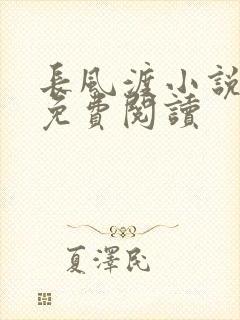 長風渡小説
免費閱讀
夏澤民